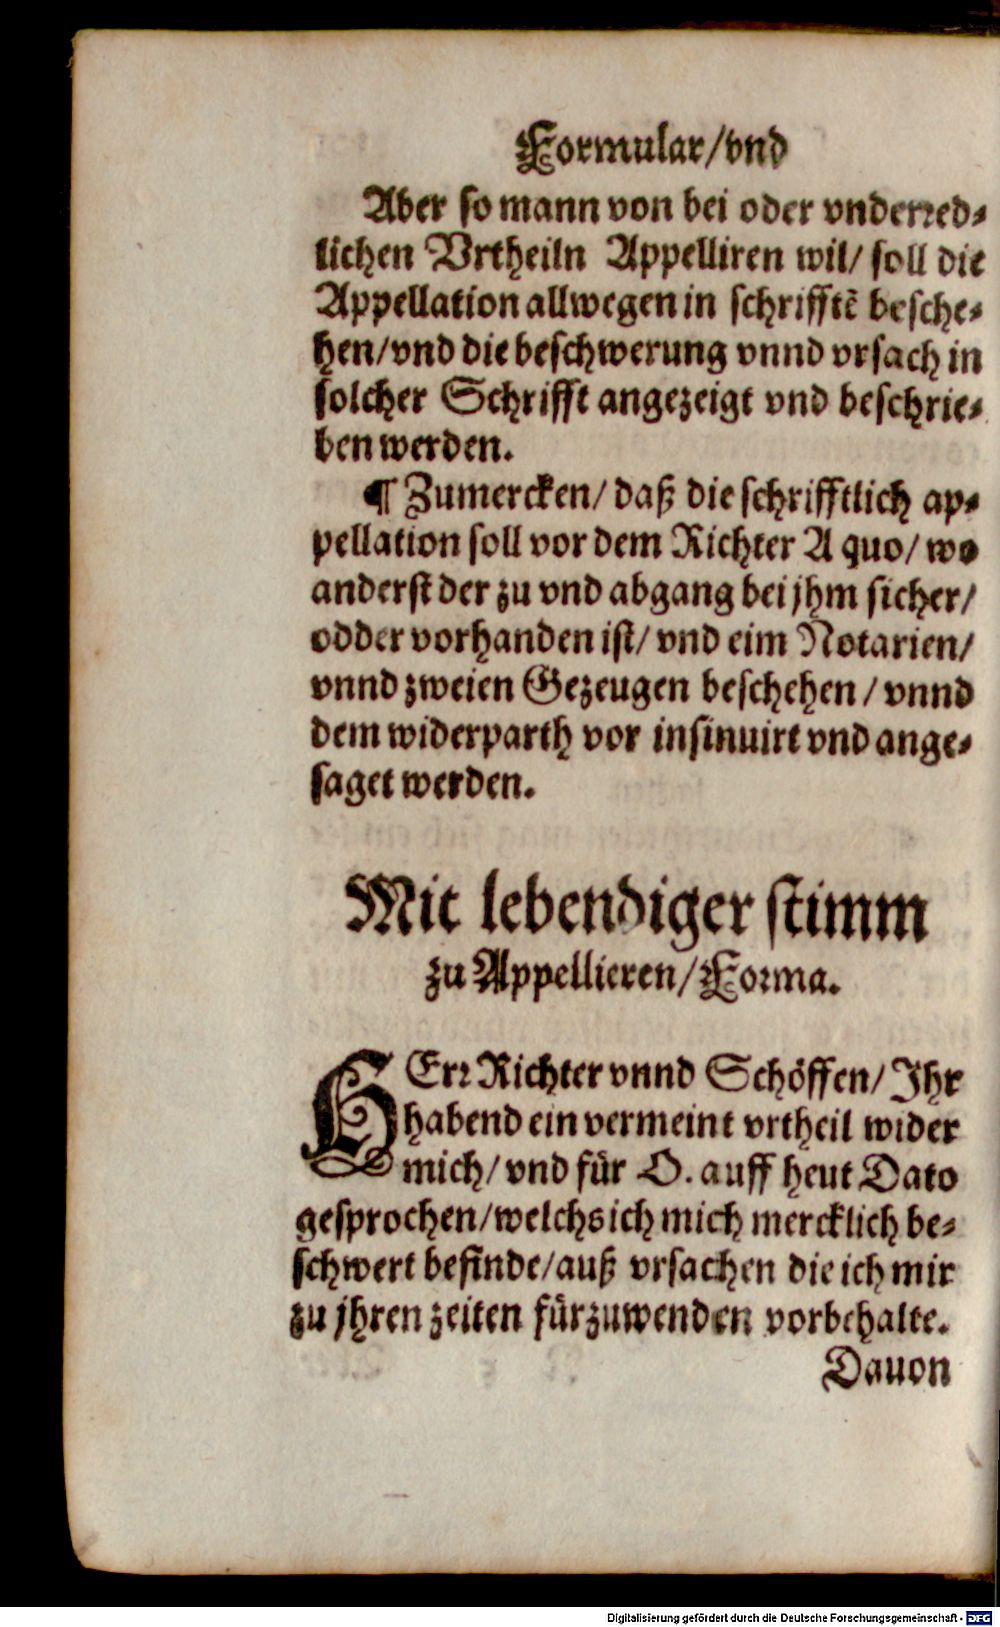 Formular/vnd
Aber so mann von bei oder vnderred-
lichen Vrtheiln Appelliren wil/ soll die
Appellation allwegen in schrifftē besche-
hen/vnd die beschwerung vnnd vrsach in
solcher Schrifft angezeigt vnd beschrie-
ben werden.
¶ Zumercken/ daß die schrifftlich ap-
pellation soll vor dem Richter A quo/ wo
anderst der zu vnd abgang bei jhm sicher/
odder vorhanden ist/ vnd eim Notarien/
vnnd zweien Gezeugen beschehen/ vnnd
dem widerparth vor insinuirt vnd ange-
saget werden.
Mit lebendiger stimm
zu Appellieren/Forma.
HErr Richter vnnd Schöffen/ Jhr
habend ein vermeint vrtheil wider
mich/ vnd für O. auff heut Dato
gesprochen/welchs ich mich mercklich be-
schwert befinde/auß vrsachen die ich mir
zu jhren zeiten fürzuwenden vorbehalte.
Dauon
Digitalisierung gefördert durch die Deutsche Forschungsgemeinschaft - DFG